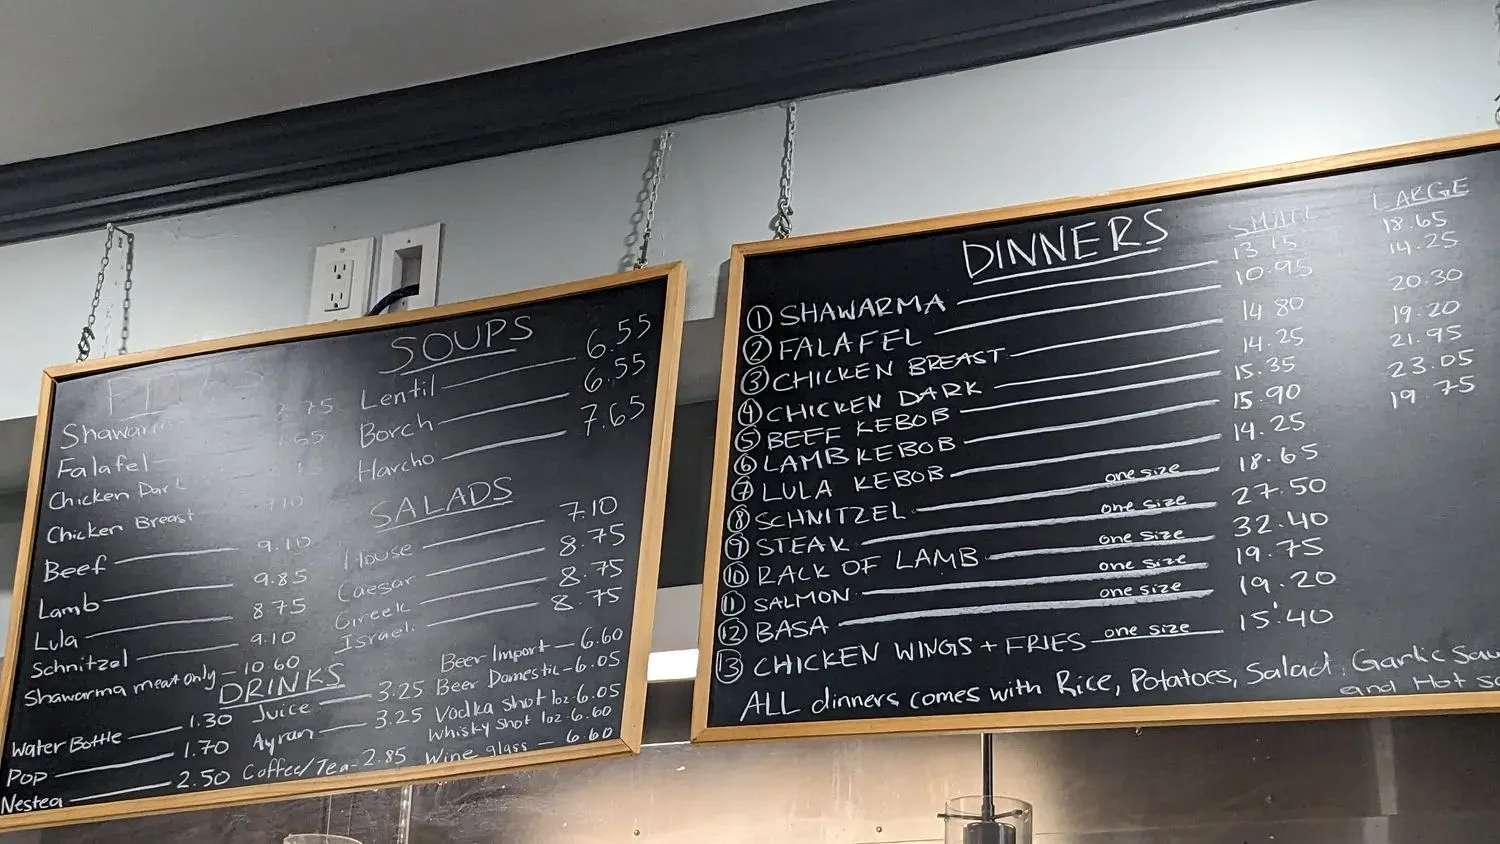 Shawarma
Falafel
Chicken Dark
Chicken Breast
Beef 9.10
Lamb 9.85
Lula 8.75
Schnitzel 9.10
Shawarma meat only 10.60
SOUPS
Lentil 6.55
Borch 6.55
Harcho 7.65
SALADS
House 7.10
Caesar 8.75
Greek 8.75
Israeli 8.75
DRINKS
Water Bottle 1.30
Pop 1.70
Nestea 2.50
Juice 3.25
Ayran 3.25
Coffee/Tea - 2.85
Beer Import 6.60
Beer Domestic - 6.05
Vodka shot 1oz 6.05
Whisky shot 1oz 6.60
Wine glass 6.60
DINNERS
SMALL LARGE
1 SHAWARMA 13.15 18.65
2 FALAFEL 10.95 14.25
3 CHICKEN BREAST 14.80 20.30
4 CHICKEN DARK 14.25 19.20
5 BEEF KEBOB 15.35 21.95
6 LAMB KEBOB 15.90 23.05
7 LULA KEBOB 14.25 19.75
8 SCHNITZEL one size 18.65
9 STEAK one size 27.50
10 RACK OF LAMB one size 32.40
11 SALMON one size 19.75
12 BASA one size 19.20
13 CHICKEN WINGS + FRIES one size 15.40
ALL dinners comes with Rice, Potatoes, Salad, Garlic
and Hot